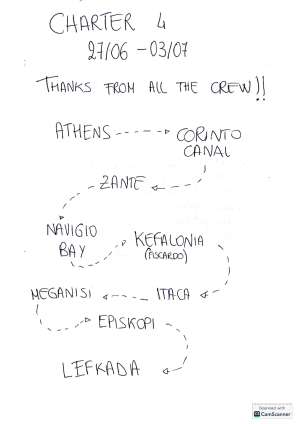 CHARTER 4
27/06 - 03/07
THANKS FROM ALL THE CREW!!
ATHENS
CORINTO
CANAL
ZANTE
NAVIGIO
BAY
KEFALONIA
(FISCARDO)
MEGANISI
ITACA
EPISKOPI
LEFKADA
Scanned with
CamScanner